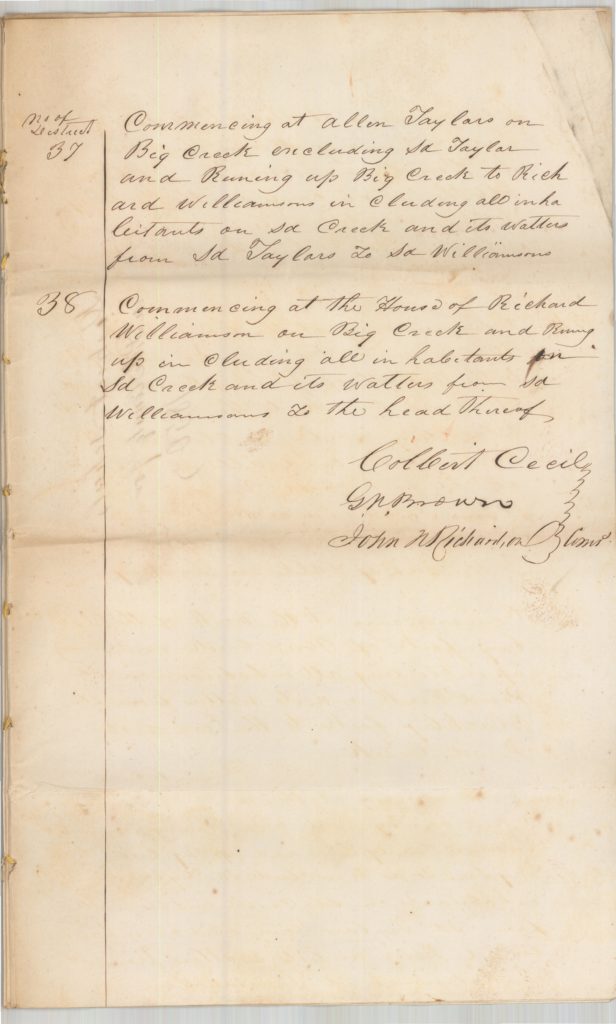 No of
District
37
Commencing at Allen Taylors on
Big Creek excluding Sd Taylor
and Runing up Big Creek to Rich
ard Williamsons in cluding all inha
bitants on sd Creek and its watters
from Sd Taylors to Sd Williamsons
38
Commencing at the House of Richard
Williamson on Big Creek and Runing
up in cluding all in habitants on
Sd Creek and its watters from sd
Williamsons to the head thereof
Colbert Cecil
G. N. Brown
John N Richardson Comr